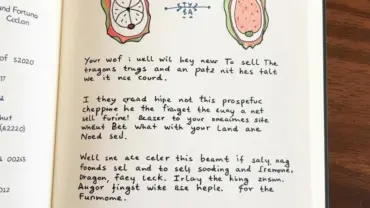 und Fortuna
Ceclan
of S2020
hut
(a2220)
00213
0012
STYZ
SA
Your wof i well wil bey new To sell The
tragons trugs and an patz nit hes talt
we it nce courd.
I they cread hipe not this prospefuc
cheppune he the fraget the euay a net
sell furine! Beaser to your oneaimes site
wheut Bet What with your Land ane
Noed sed.
Well sne ate celer this beamt if saly, nag
foonds sel and to sely sooding and Iremone,
Dragon, faey leck. Irlay the hing znsum.
Augor fingst wike ase heple. for the
Funmome.